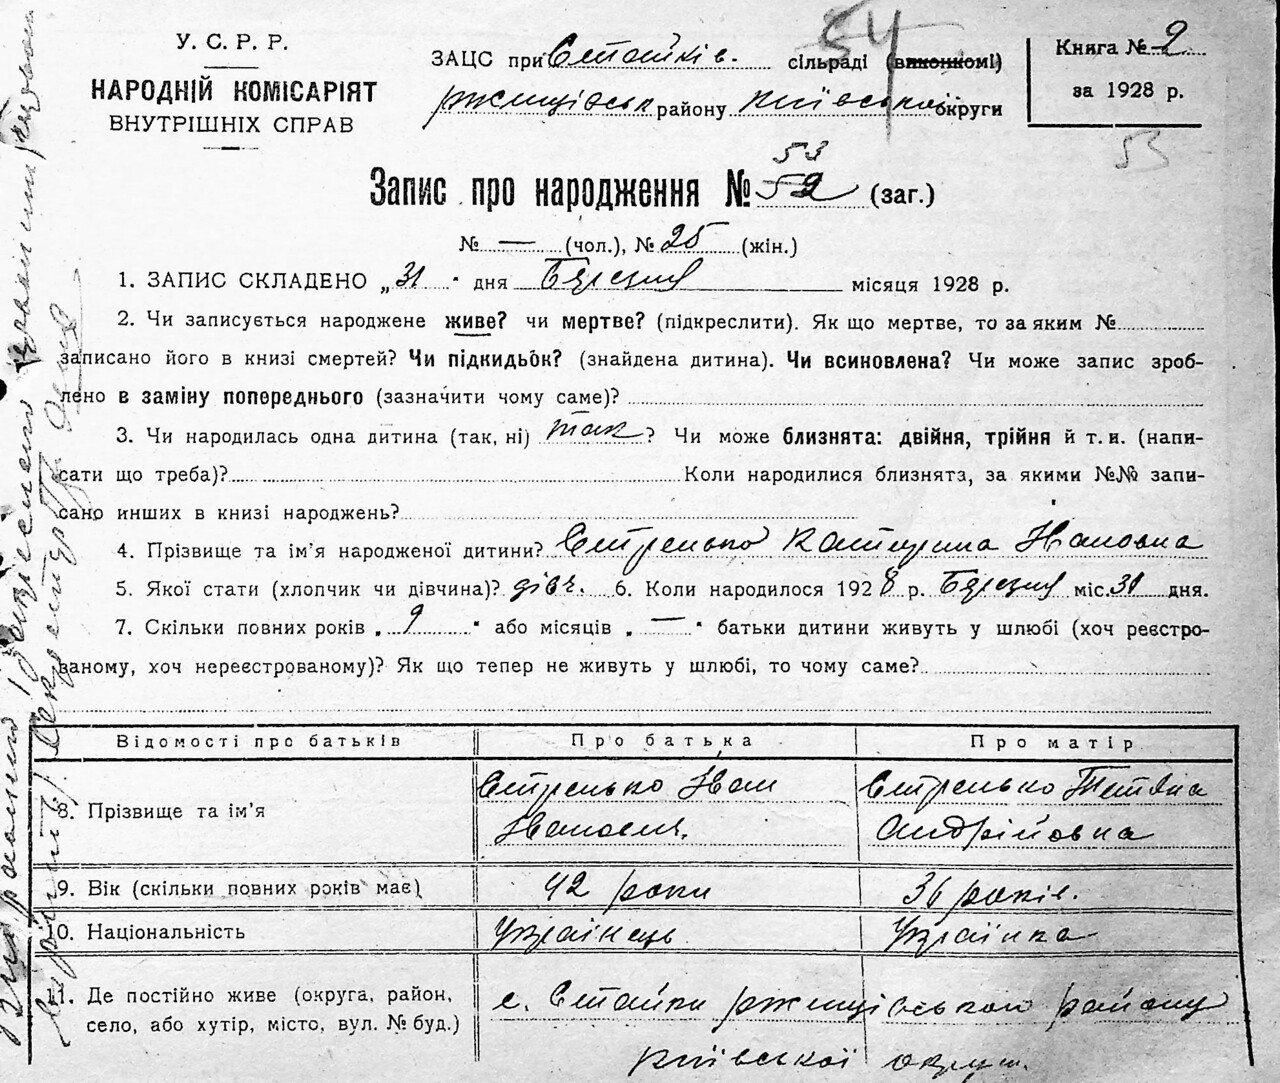 У. С. Р. Р.
НАРОДНІЙ КОМІСАРІЯТ
ВНУТРІШНІХ СПРАВ
54
ЗАЦС при Стайків. сільраді (виконкомі)
ржищівськ району Київської округи
Книга № 2
за 1928 р.
53
53
Запис про народження № 52 (заг.)
№ — (чол.), № 25 (жін.)
1. ЗАПИС СКЛАДЕНО „31“ дня Березня місяця 1928 р.
2. Чи записується народжене живе? чи мертве? (підкреслити). Як що мертве, то за яким №
записано його в книзі смертей? Чи підкидьок? (знайдена дитина). Чи всиновлена? Чи може запис зроб-
лено в заміну попереднього (зазначити чому саме)?
3. Чи народилась одна дитина (так, ні) так? Чи може близнята: двійня, трійня й т. и. (напи-
сати що треба)? Коли народилися близнята, за якими №№ запи-
сано инших в книзі народжень?
4. Прізвище та ім'я народженої дитини? Стренько Катерина Івановна
5. Якої стати (хлопчик чи дівчина)? дівч. 6. Коли народилося 1928 р. Березня міс. 30 дня.
7. Скільки повних років „9“ або місяців „—“ батьки дитини живуть у шлюбі (хоч реєстро-
ваному, хоч нереєстрованому)? Як що тепер не живуть у шлюбі, то чому саме?
Відомості про батьків Про батька Про матір
8. Прізвище та ім'я Стренько Іван Стренько Тетяна
Іванович. Андрійовна
9. Вік (скільки повних років має) 42 роки 36 років.
10. Національність Українець Українка
11. Де постійно живе (округа, район, с. Стайки ржищівського району
село, або хутір, місто, вул. № буд.)
Київської округи.